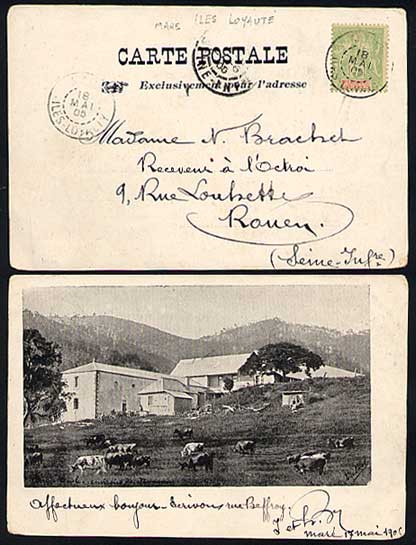 MARE ILES LOYAUTÉ
CARTE POSTALE
Exclusivement pour l'adresse
18
MAI
05
ILES-LOYALTY
18
MAI
05
Madame N. Brachet
Receveur à l'Octroi
9, Rue Loubette
Rouen
(Seine-Infre)
Affectueux bonjour - Écrivons rue Beffroy
maré 17 mai 190